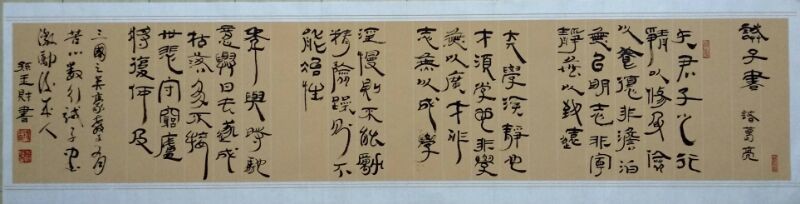 誡子書 諸葛亮
夫君子之行
靜以修身儉
以養德非澹泊
無以明志非寧
靜無以致遠
夫學須靜也
才須學也非學
無以廣才非
志無以成學
淫慢則不能勵
精險躁則不
能冶性
年與時馳
意與日去遂成
枯落多不接
世悲守窮廬
將復何及
三國之英豪
苦心教行誡子書
激勵後來人
書